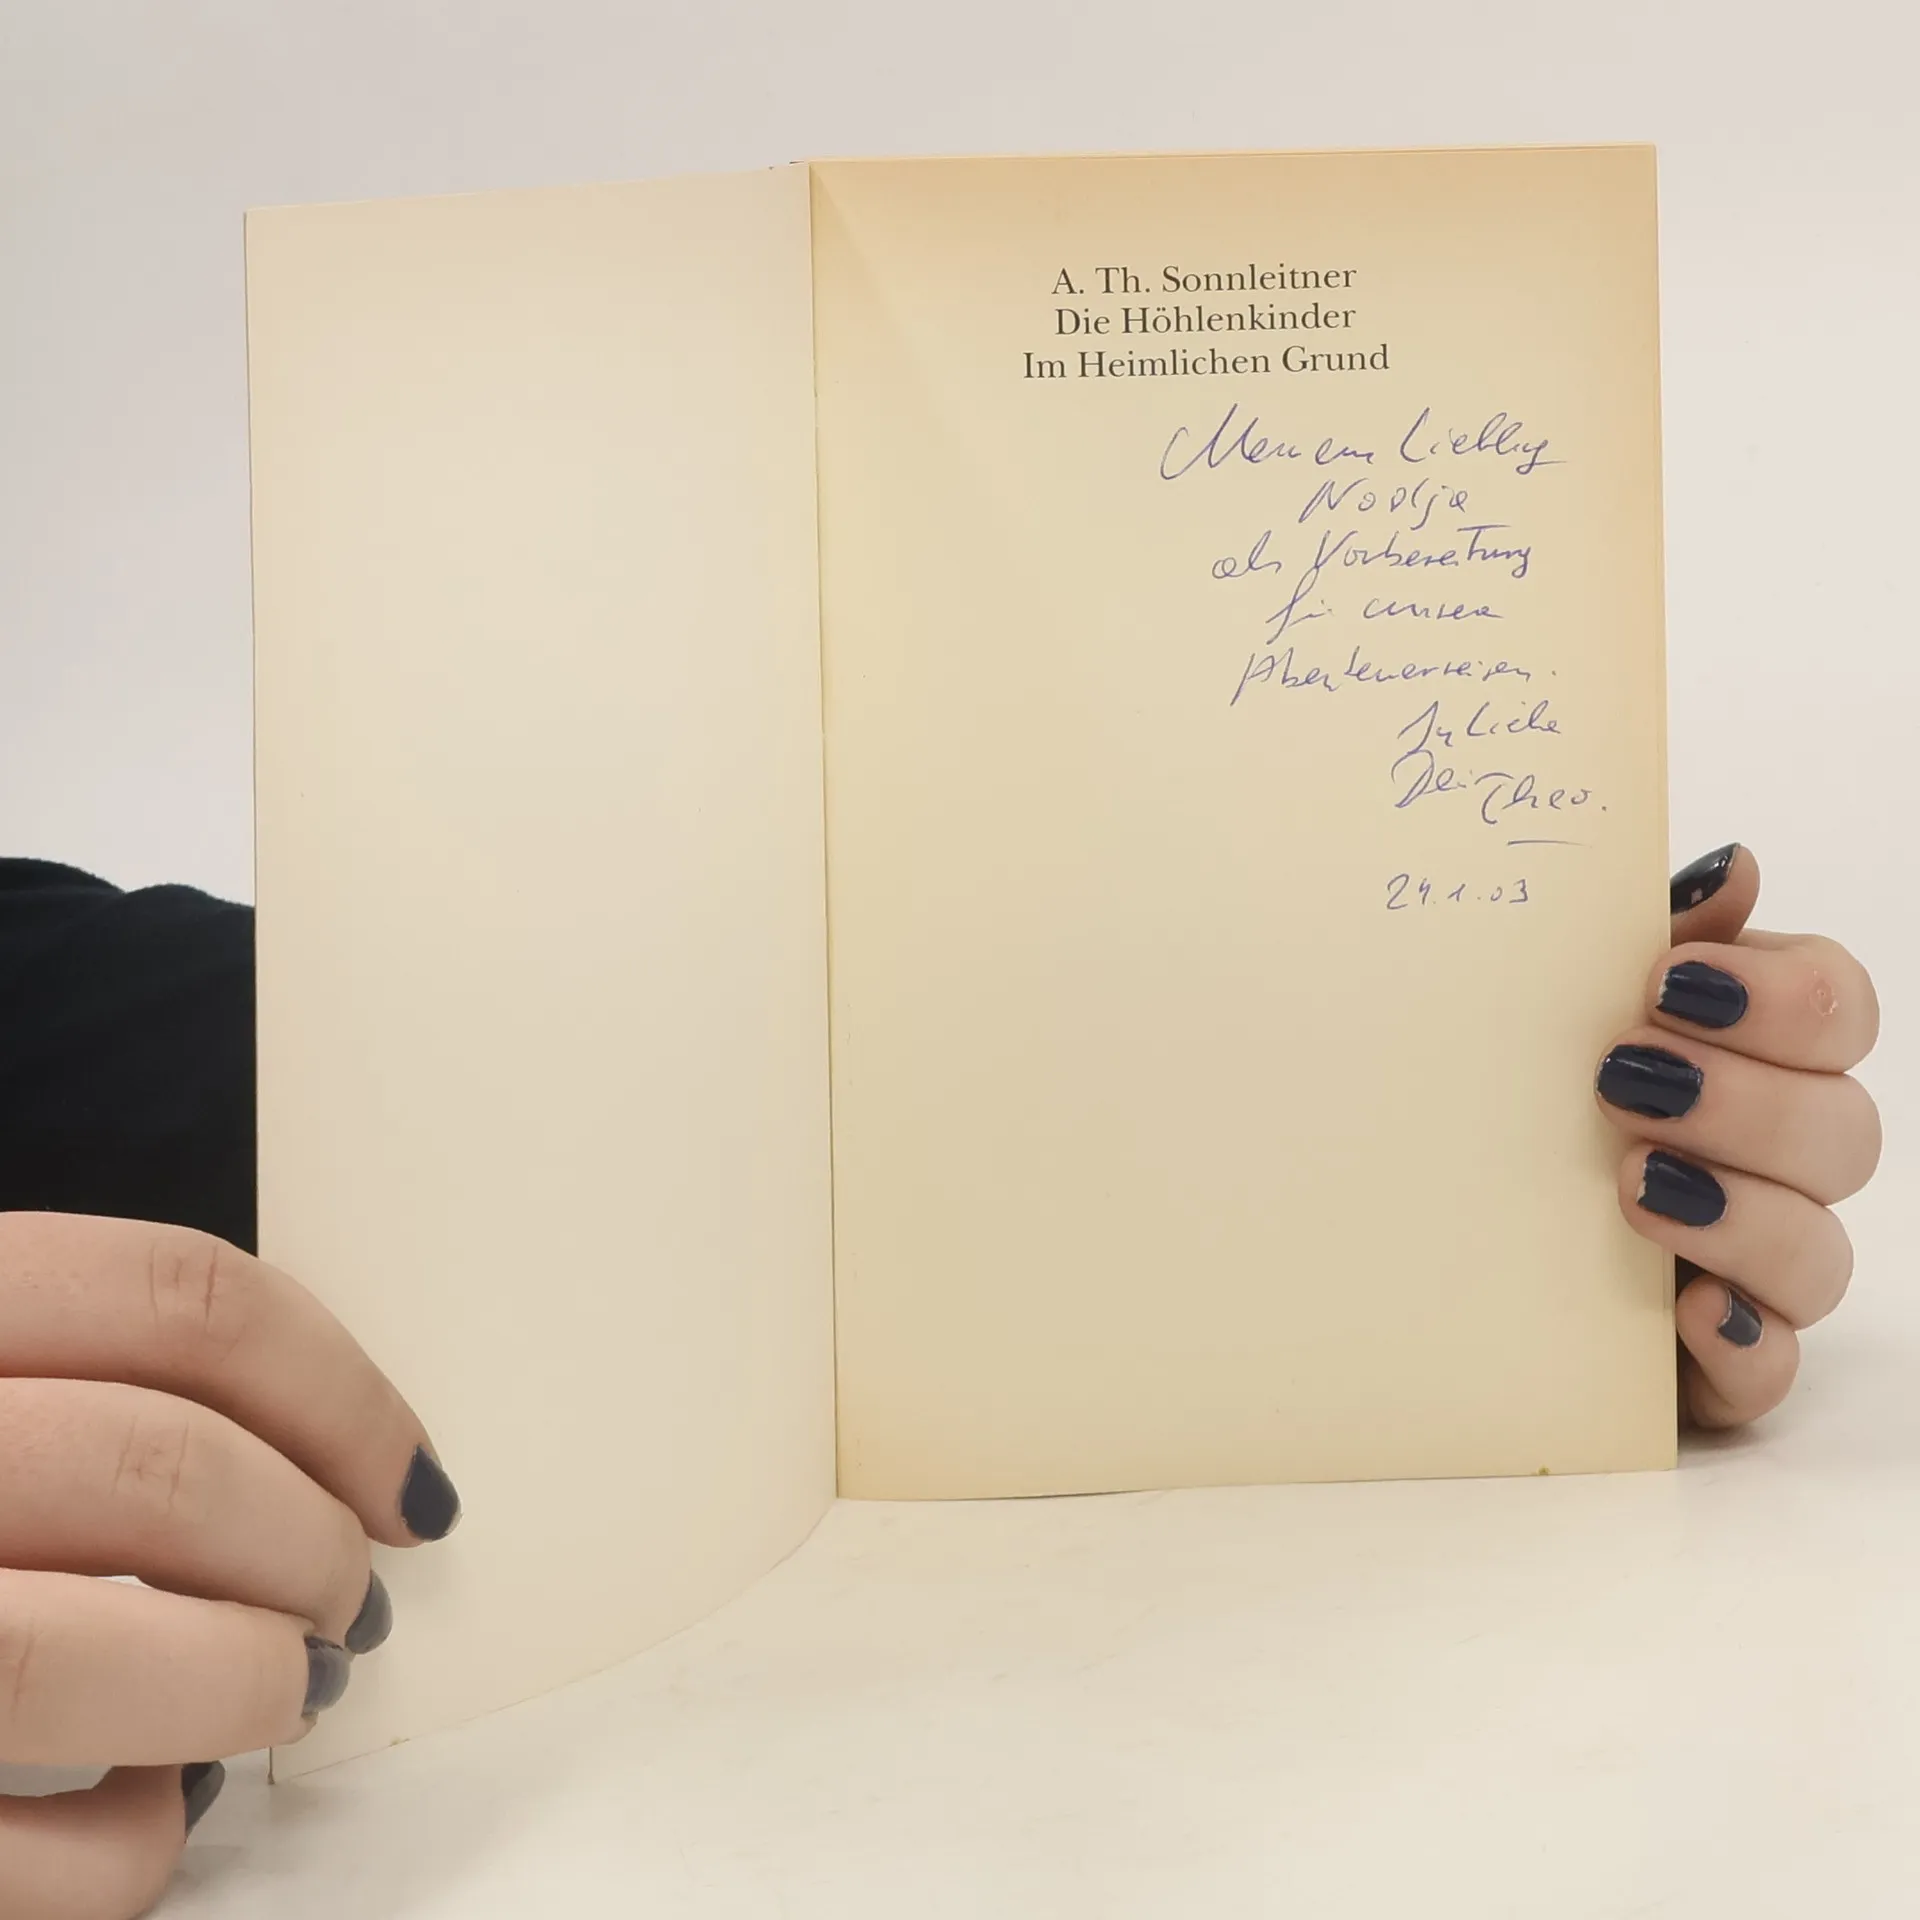 A. Th. Sonnleitner
Die Höhlenkinder
Im Heimlichen Grund
Meinem Liebling
Nadja
als Vorbereitung
für unsere
Abenteuerreisen.
In Liebe
Dein Theo.
24.1.03